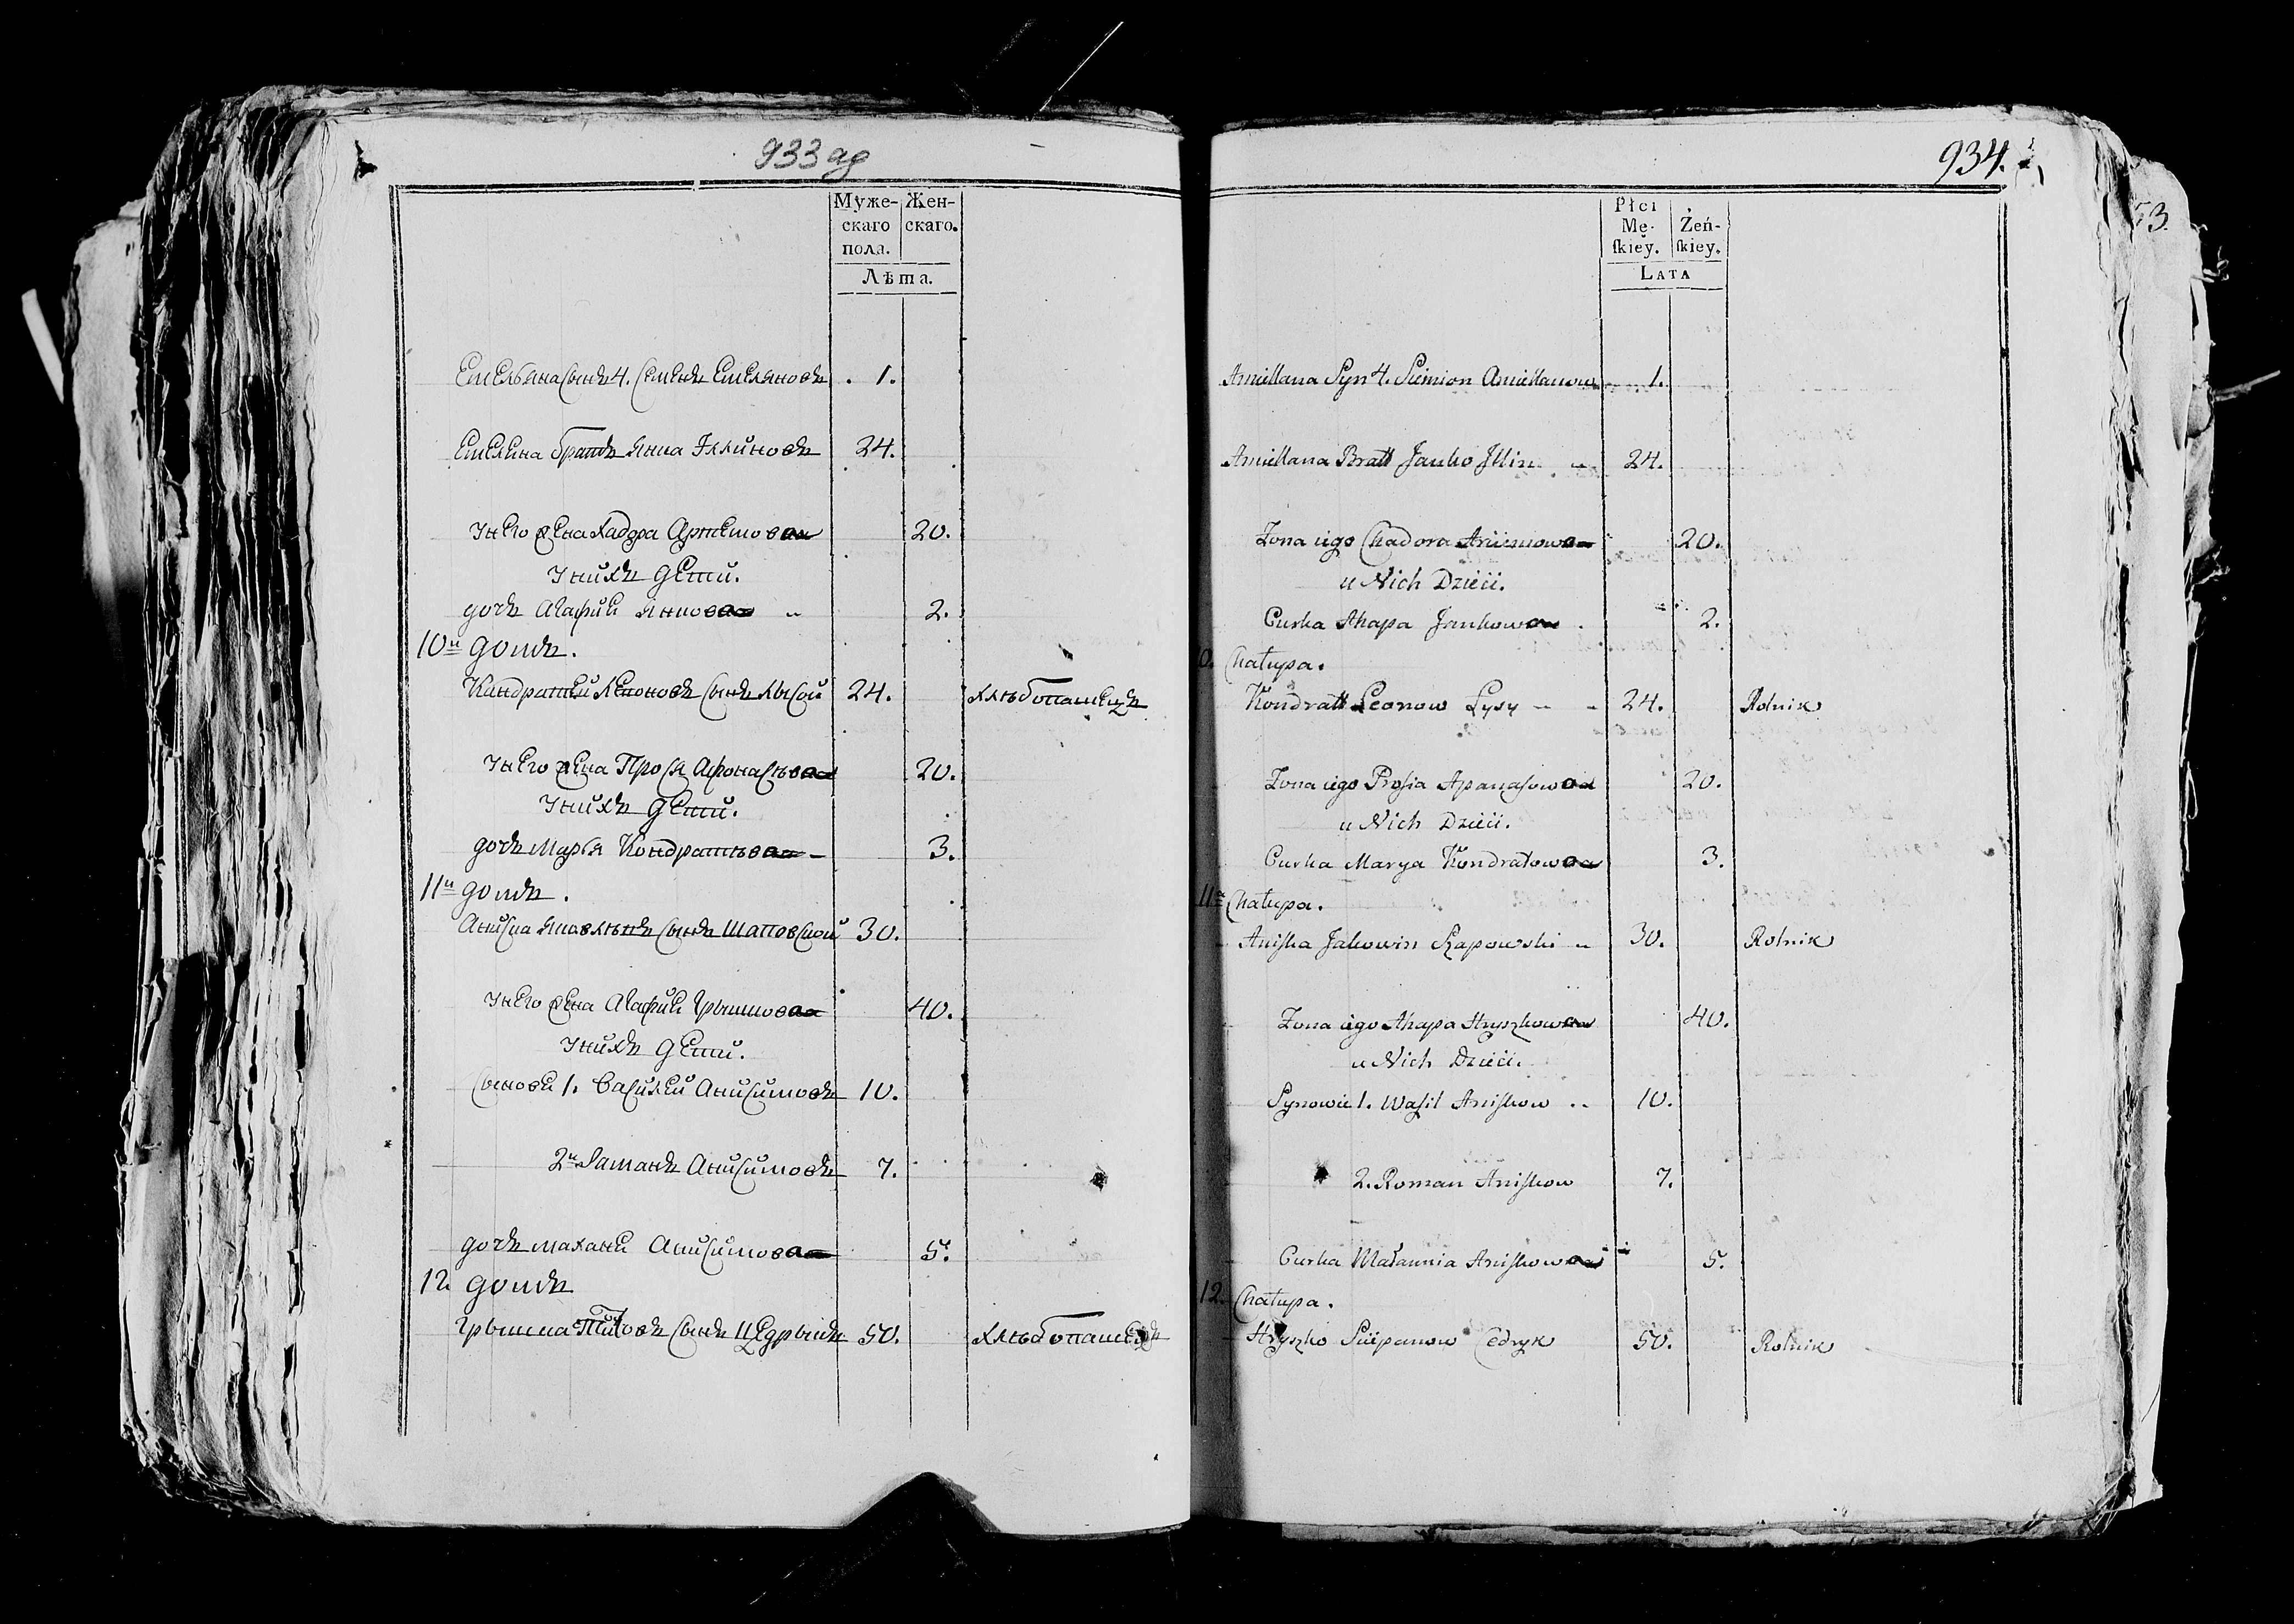 933 aд
Муже- Жен-
скаго скаго.
пола.
Лѣта.
Емельяна сынъ 4. Семенъ Емеляновъ 1.
Емеляна братъ Янка Иллиновъ 24.
У него жена Хадора 20.
У нихъ дети.
дочъ Агафия Янкова 2.
10й домъ.
Кандратей Леоновъ сынъ Лысой 24. хлѣбопашецъ
У него жена Прося Афонасьева 20.
У нихъ дети.
дочъ Марья Кондратьева 3.
11й домъ.
Аниска Яковлевъ сынъ Шаповской 30.
У него жена Агафия Грышкова 40.
У нихъ дети.
Сыновя 1. Василей Анисимовъ 10.
2й Раманъ Анисимовъ 7.
дочъ Малания Анисимова 5.
12 домъ
Грышка сынъ Цедрыкъ 50. хлѣбопашецъ
934.
73.
Płci
Mę- Żeń-
skiey. skiey.
LATA
Amiellana Syn 4. Siemion Amiellanow 1.
Amiellana Bratt Janko Jllin 24.
Zona iego Chadora 20.
u Nich Dzieci.
Curka Ahapa Jankowa 2.
0. Chałupa.
Kondratt Leonow Łysy 24. Rolnik
Zona iego Prosia Apanasowa 20.
u Nich Dzieci.
Curka Marya Kondratowa 3.
11a Chałupa.
Aniska Jakowin Szapowski 30. Rolnik
Zona iego Ahapa Hryszkowa 40.
u Nich Dzieci.
Synowie 1. Wasil Aniskow 10.
2. Roman Aniskow 7.
Curka Małannia Aniskowa 5.
12. Chałupa.
Hryszko Sciepanow Cedryk 50. Rolnik